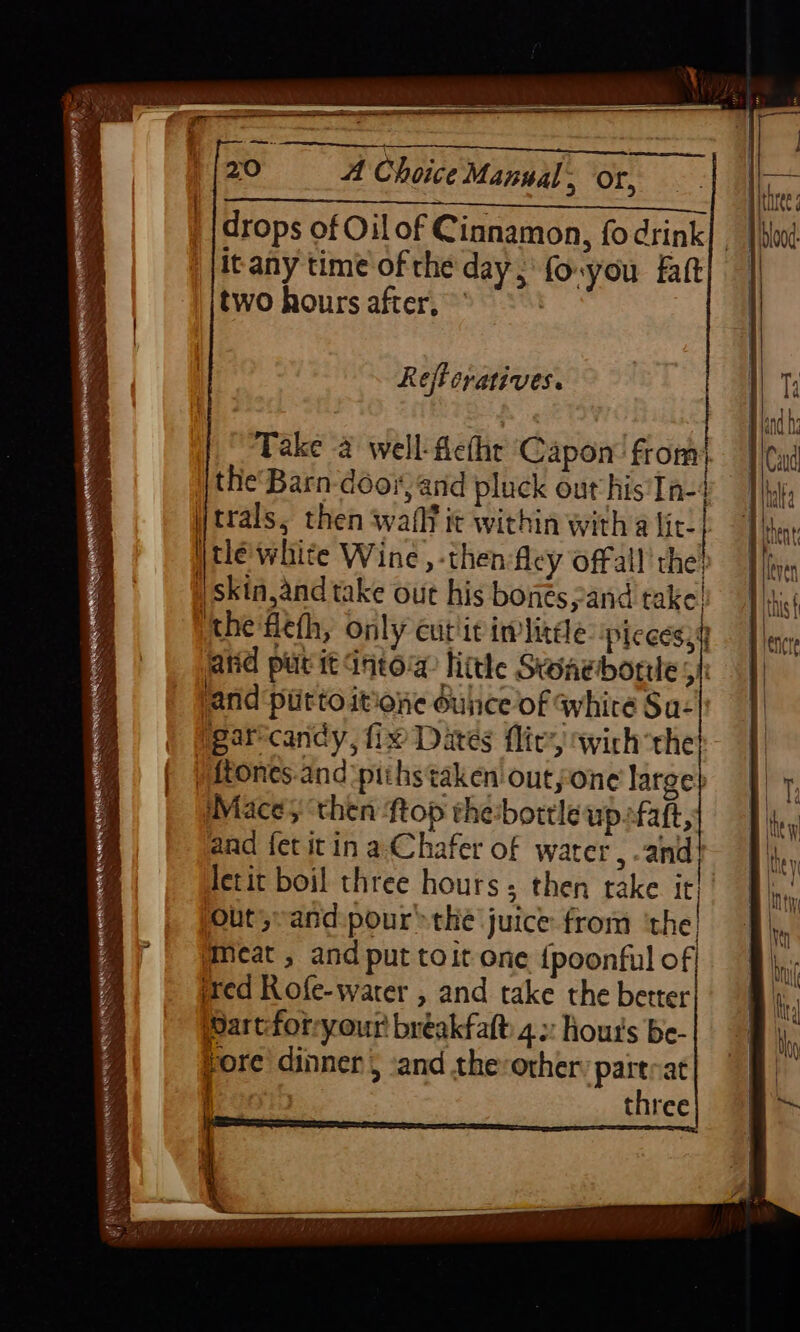 20 A Choice Manual, or,
drops of Oil of Cinnamon, ſo drink
it any time of the day, ſo you faſt
two hours after.
Reſtoratives.
Take a well fleſht Capon from
the Barn door, and pluck out his In-
trals, then waſh it within with a lit-
tle white Wine, then fley off all the
skin, and take out his bones, and take
the fleſh, only cut it in little pieces,
and put it into a little Stone bottle,
and put to it one ounce of white Su-
gar candy, ſix Dates ſlit, with the
ſtones and piths taken out, one large
Mace, then ſtop the bottle up faſt,
and ſet it in a Chafer of water, and
let it boil three hours, then take it
out, and pour the juice from the
meat, and put to it one ſpoonful of
red Roſe-water, and take the better
part for your breakfaſt 4. hours be-
fore dinner, and the other part at
three
three
blood